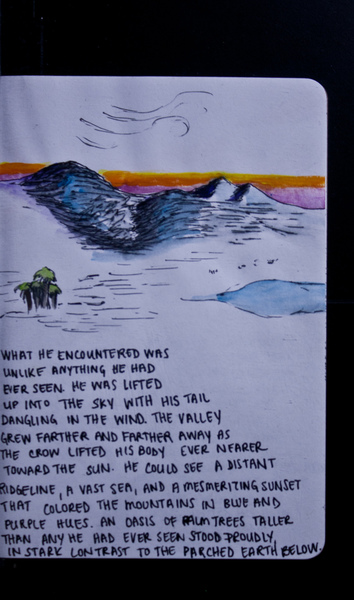 WHAT HE ENCOUNTERED WAS
UNLIKE ANYTHING HE HAD
EVER SEEN. HE WAS LIFTED
UP INTO THE SKY WITH HIS TAIL
DANGLING IN THE WIND. THE VALLEY
GREW FARTHER AND FARTHER AWAY AS
THE CROW LIFTED HIS BODY EVER NEARER
TOWARD THE SUN. HE COULD SEE A DISTANT
RIDGELINE, A VAST SEA, AND A MESMERIZING SUNSET
THAT COLORED THE MOUNTAINS IN BLUE AND
PURPLE HUES. AN OASIS OF PALM TREES TALLER
THAN ANY HE HAD EVER SEEN STOOD PROUDLY,
IN STARK CONTRAST TO THE PARCHED EARTH BELOW.